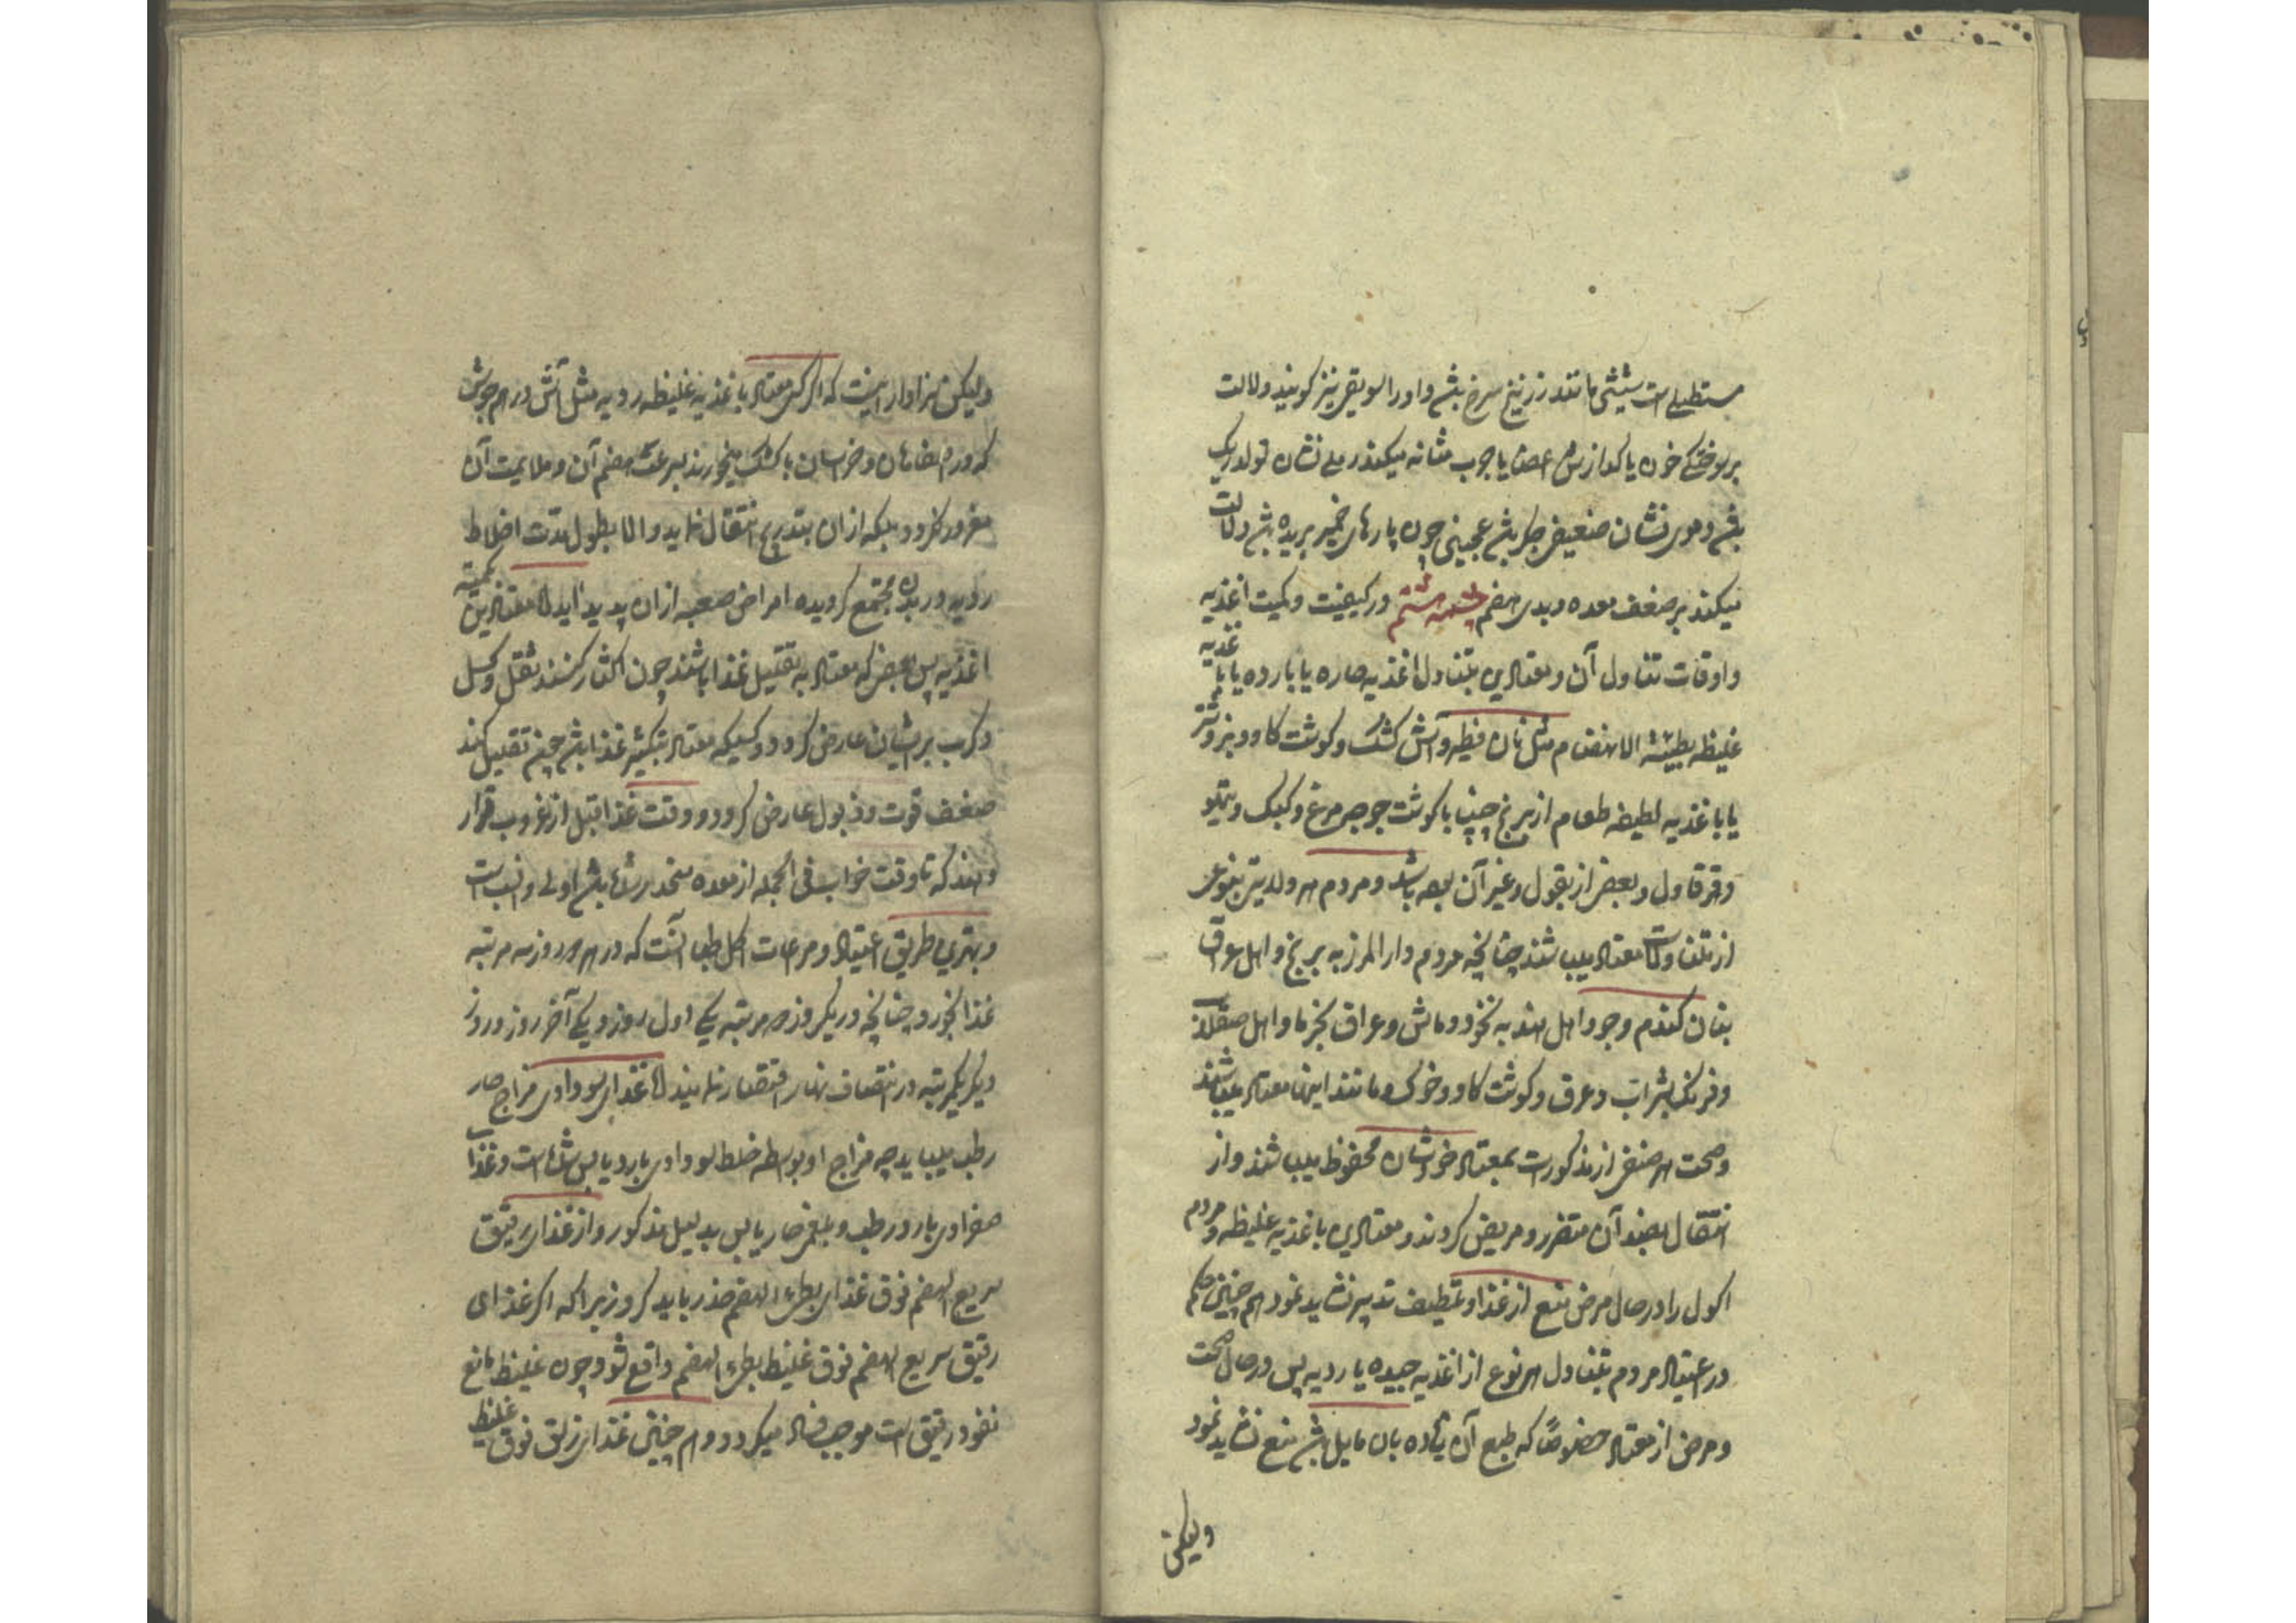 مستطیلی است شیئی مانند زرنیخ سرخ باشد و او را سویقی نیز کویند و دلالت
بر سوختکی خون یا کدازش اعضا یا جرب مثانه میکند رملی نشان تولد ریک
باشد دموی نشان ضعیفی جکر باشد عجینی چون پارهای خمیر بریده باشد دلالت
میکند بر ضعف معده و بدی هضم چشمه هشتم در کیفیت و کمیت اغذیه
و اوقات تناول آن و معتادین بتناول اغذیه حاره یا بارده یا باغذیه
غلیظه بطیئة الانهضام مثل نان فطیر و آش کشک و کوشت کاو و بز و شتر
یا باغذیه لطیفه طعام از برنج چنپا با کوشت جوجه مرغ و کبک و تیهو
و قرقاول و بعضی از بقول و غیر آن بوده باشد و مردم هر ولایتی بنوعی
از تناولات معتاد میباشند چنانچه مردم دار المرز به برنج و اهل عراق
بنان کندم و جو و اهل هند به نخود و ماش و عراق بخرما و اهل صقلاب
و فرنک بشراب و عرق و کوشت کاو و خوک و مانند اینها معتاد میباشند
و صحت هر صنفی از مذکورات بمعتاد خودشان محفوظ میباشند و از
انتقال بضد آن متضرر و مریض کردند و معتادین باغذیه غلیظه و مردم
اکول را در حال مرض منع از غذا و تلطیف تدبیر نشاید نمود هم چنین حکم
در اعتیاد مردم بتناول هر نوع از اغذیه جیده یا ردیه پس در حال صحت
و مرض از معتاد خصوصاً که طبع آن زیاده بان مایل باشد منع نشاید نمود
ولیکن
ولیکن سزاوار اینست که اکر کسی معتاد باغذیه غلیظه ردیه مثل آش در هم جوش
که در اصفاهان و خراسان با کشک میخورند بسرعت هضم آن و ملایمت آن
مغرور نکردد بلکه از ان بتدریج انتقال نماید و الا بطول مدت اخلاط
ردیه در بدن مجتمع کردیده امراض صعبه از ان پدید آید اما معتادین بکمیت
اغذیه پس بعضی که معتاد به تقلیل غذا باشند چون اکثار کنند ثقل و کسل
و کرب بر ایشان عارض کردد و کسیکه معتاد بتکثیر غذا باشد چون تقلیل کند
ضعف قوت و ذبول عارض کردد و وقت غذا قبل از غروب قرار
دهند که تا وقت خواب فی الجمله از معده منحدر شده باشد اولی و انسب است
و بهترین طریق اعتیاد و مراعات اکل طعام آنست که در هر دو روز سه مرتبه
غذا بخورد چنانچه در یکروز دو مرتبه یکی اول روز و یکی آخر روز و روز
دیکر یکمرتبه در انتصاف نهار اقتصار نمایند اما غذای سوداوی مزاج حار
رطب میباید چه مزاج او بواسطه خلط سوداوی بارد یابس شده است و غذای
صفراوی بارد رطب و بلغمی حار یابس بدلیل مذکور و از غذای رقیق
سریع الهضم فوق غذای بطیء الهضم حذر باید کرد زیرا که اکر غذای
رقیق سریع الهضم فوق غلیظ بطیء الهضم واقع شود چون غلیظ مانع
نفوذ رقیق است موجب فساد میکردد و هم چنین غذای زلق فوق غلیظ